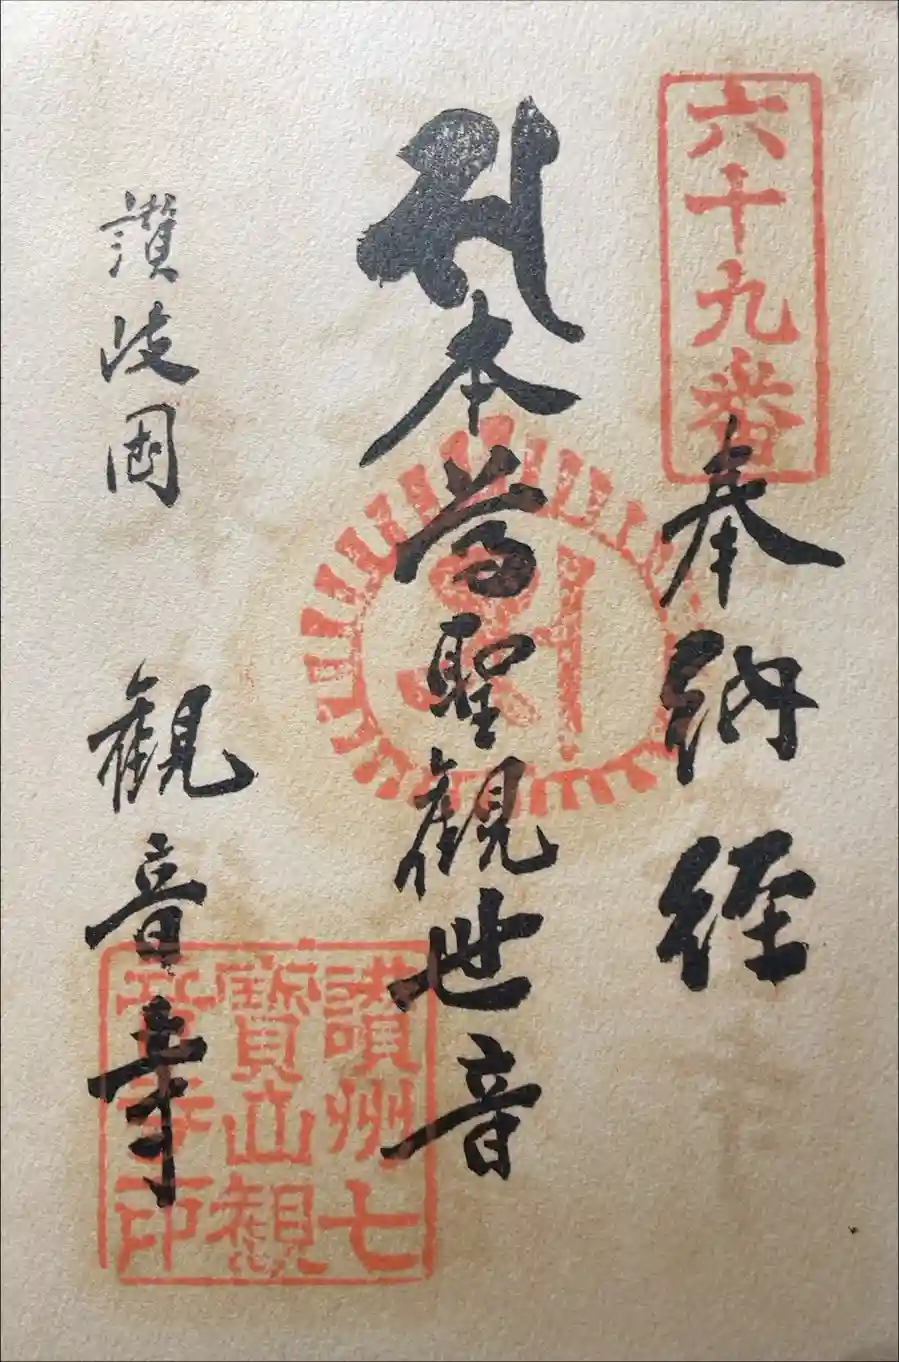 六十九番
奉納経
本尊聖観世音
讃岐国
観音寺
讃州七
寳山觀
音寺印